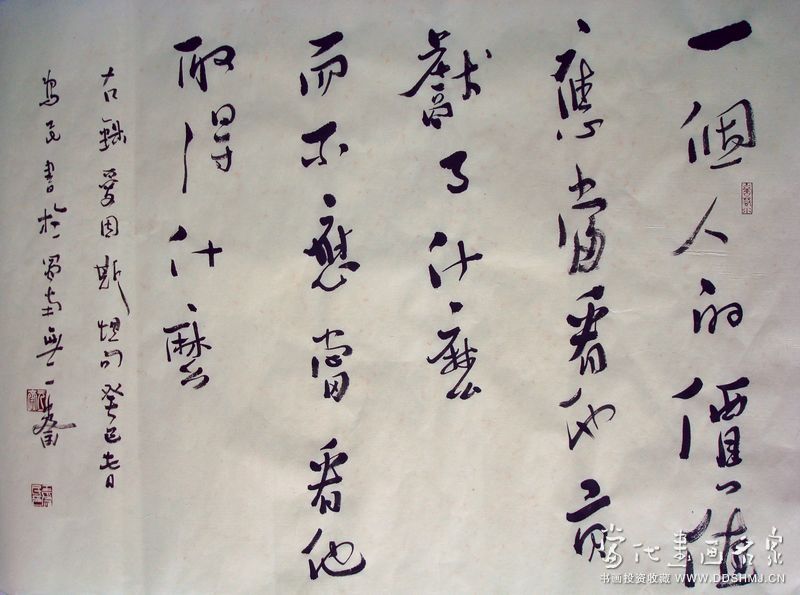 一個人的價值
應當看他貢
獻了什麼
而不應當看他
取得什麼
右錄愛因斯坦句癸巳春日
書於蜀南無一齋
当代書画名家
书画投资收藏 WWW.DDSHMJ.CN